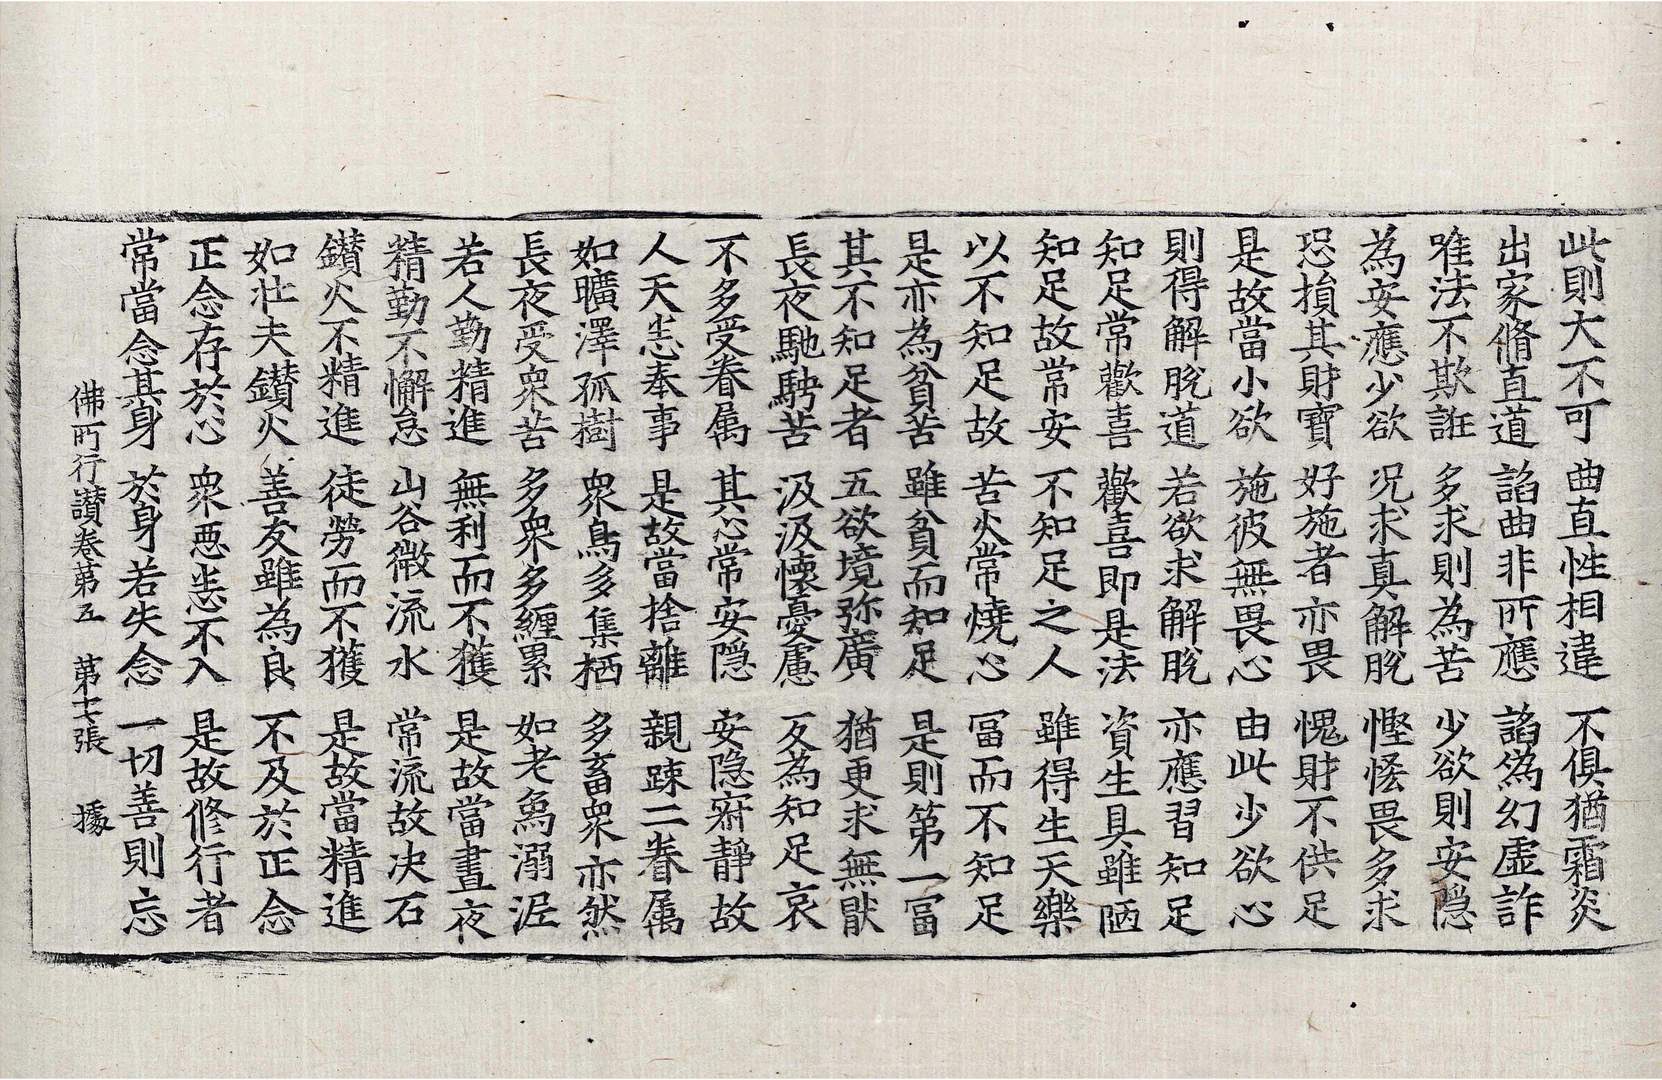 此則大不可 曲直性相違 不俱猶霜炎
出家脩直道 諂曲非所應 諂僞幻虛詐
唯法不欺誑 多求則為苦 少欲則安隱
為安應少欲 况求真解脫 慳悋畏多求
恐損其財寶 好施者亦畏 愧財不供足
是故當小欲 施彼無畏心 由此少欲心
則得解脫道 若欲求解脫 亦應習知足
知足常歡喜 歡喜即是法 資生具雖陋
知足故常安 不知足之人 雖得生天樂
以不知足故 苦火常燒心 冨而不知足
是亦為貧苦 雖貧而知足 是則第一冨
其不知足者 五欲境弥廣 猶更求無猒
長夜馳騁苦 汲汲懷憂慮 反為知足哀
不多受眷属 其心常安隱 安隱寂靜故
人天悉奉事 是故當捨離 親踈二眷属
如曠澤孤樹 衆鳥多集栖 多畜衆亦然
長夜受衆苦 多衆多纏累 如老象溺泥
若人勤精進 無利而不獲 是故當晝夜
精勤不懈怠 山谷微流水 常流故决石
鑚火不精進 徒勞而不獲 是故當精進
如壯夫鑚火 善友雖為良 不及於正念
正念存於心 衆惡悉不入 是故修行者
常當念其身 於身若失念 一切善則忘
佛所行讃卷第五 第十七張 據